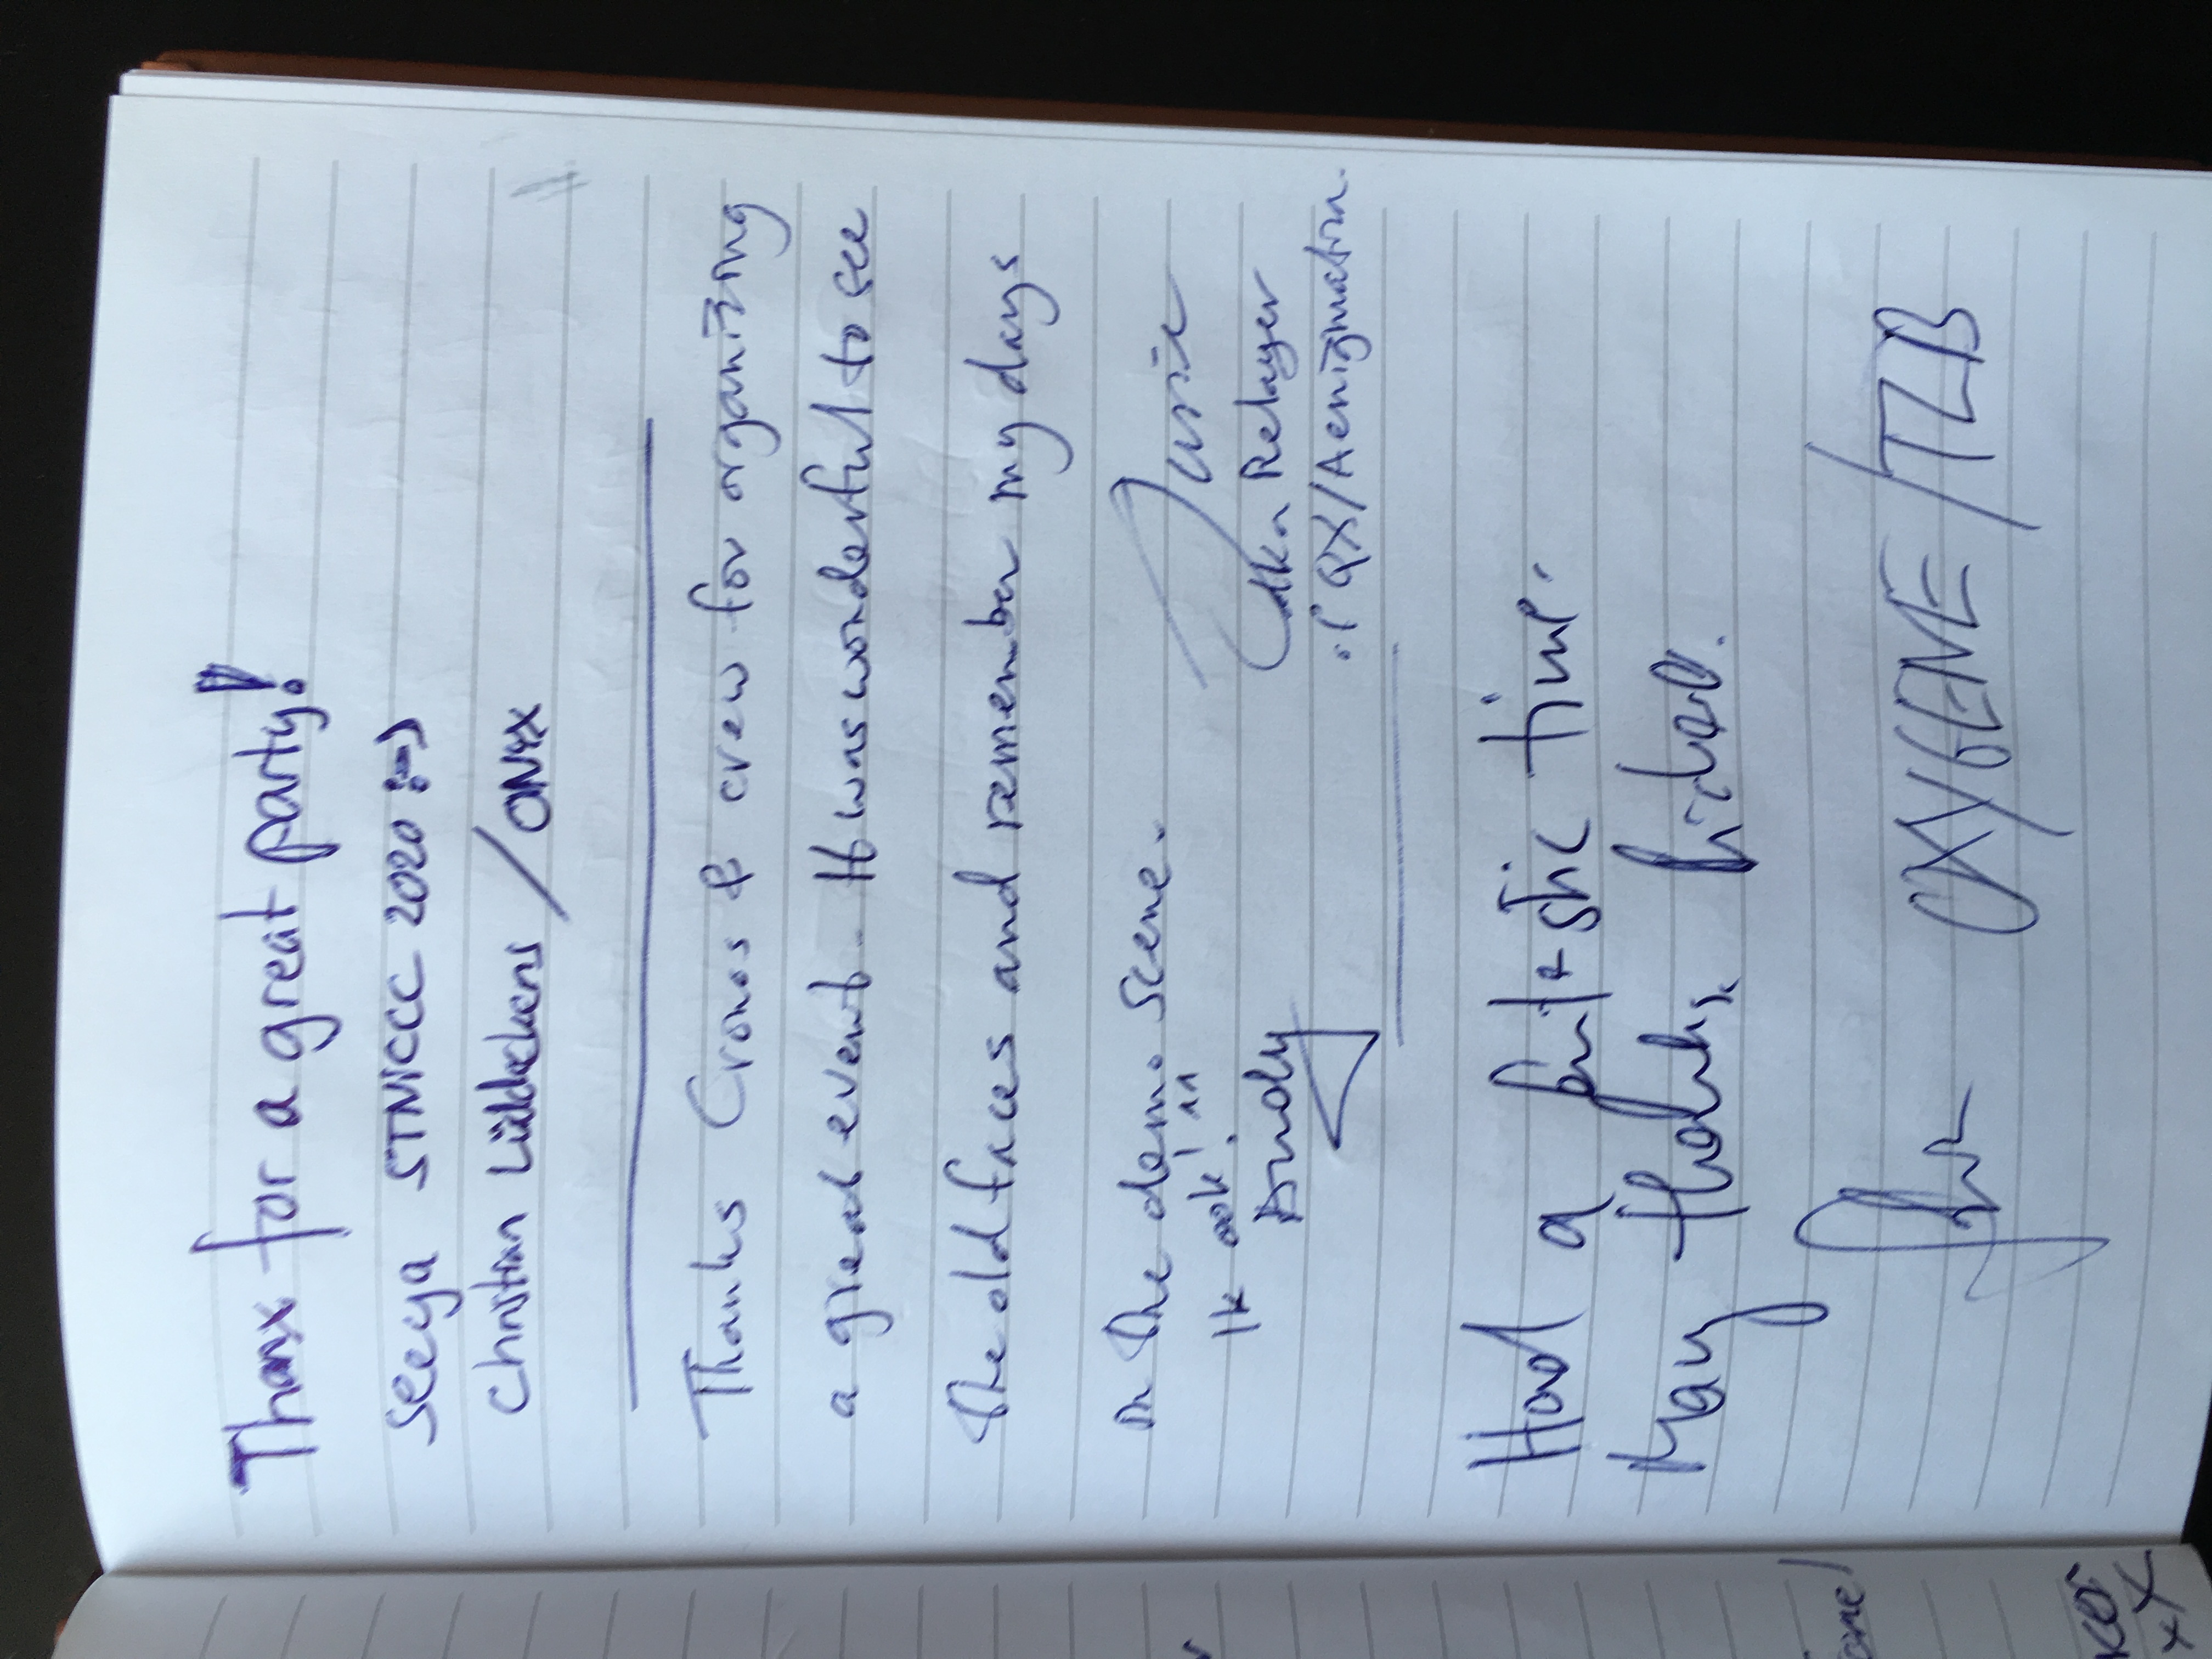 Thanx for a great party!
Seeya STNICCC 2020 :-)
Christian Lüddeckens / ONYX
Thanks Cronos & crew for organizing
a great event. It was wonderful to see
the old faces and remember my days
in the demo scene.
Ik ook! ^^
Aka Relayer
of QX/Aenigmatica.
Had a fantastic time.
Many thanks, Richard.
OXYGENE / TLB